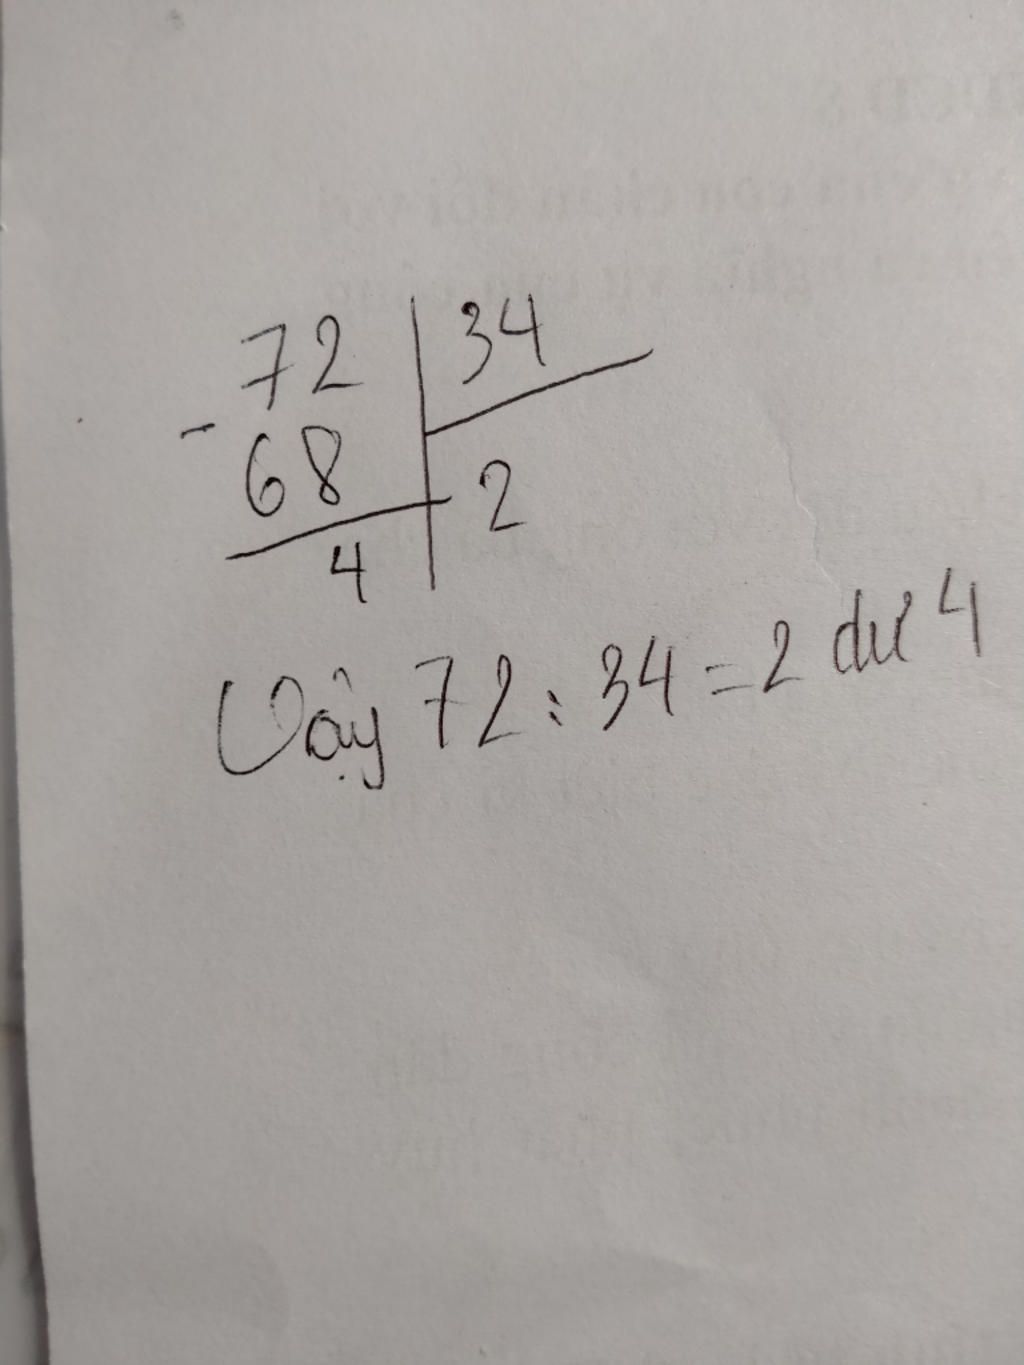 72 | 34
- 68 | 2
4
Vậy 72 : 34 = 2 dư 4